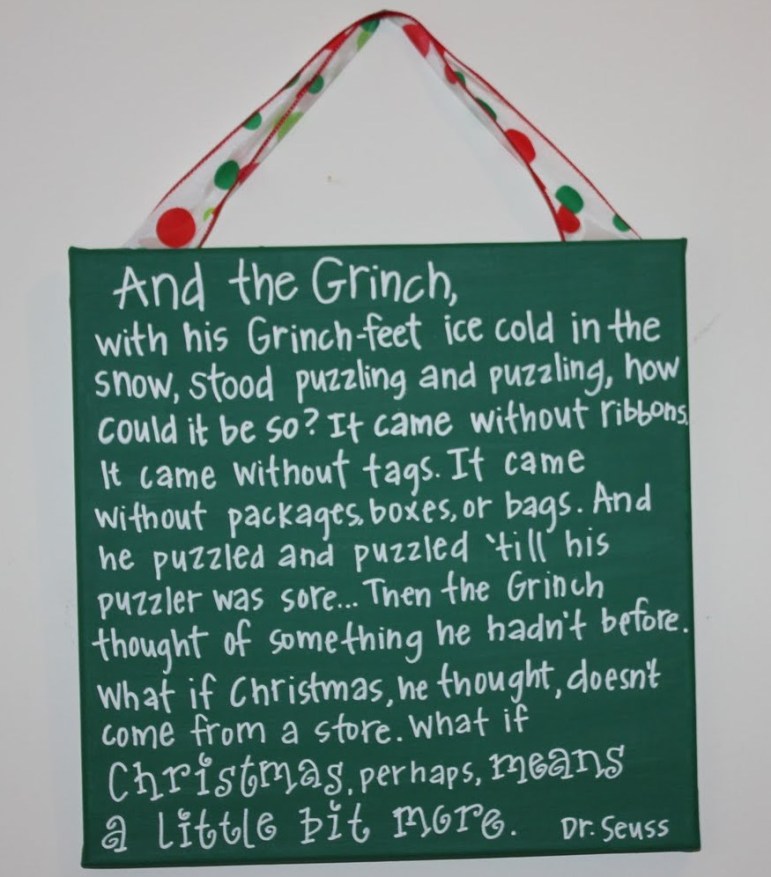 And the Grinch,
with his Grinch-feet ice cold in the
snow, stood puzzling and puzzling, how
could it be so? It came without ribbons.
It came without tags. It came
without packages, boxes, or bags. And
he puzzled and puzzled 'till his
puzzler was sore... Then the Grinch
thought of something he hadn't before.
What if Christmas, he thought, doesn't
come from a store. What if
Christmas, perhaps, means
a little bit more. Dr. Seuss